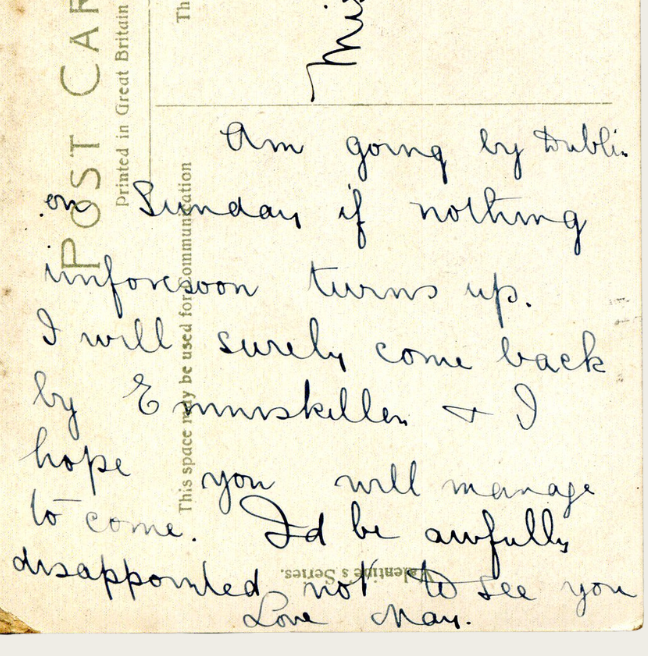 POST CAR
Printed in Great Britain
Th
This space may be used for Communication
Mis
Am going by Dublin
on Sunday if nothing
unforesoon turns up.
I will surely come back
by Enniskillen & I
hope you will manage
to come. I'd be awfully
disappointed not to see you
Valentine's Series.
Love May.